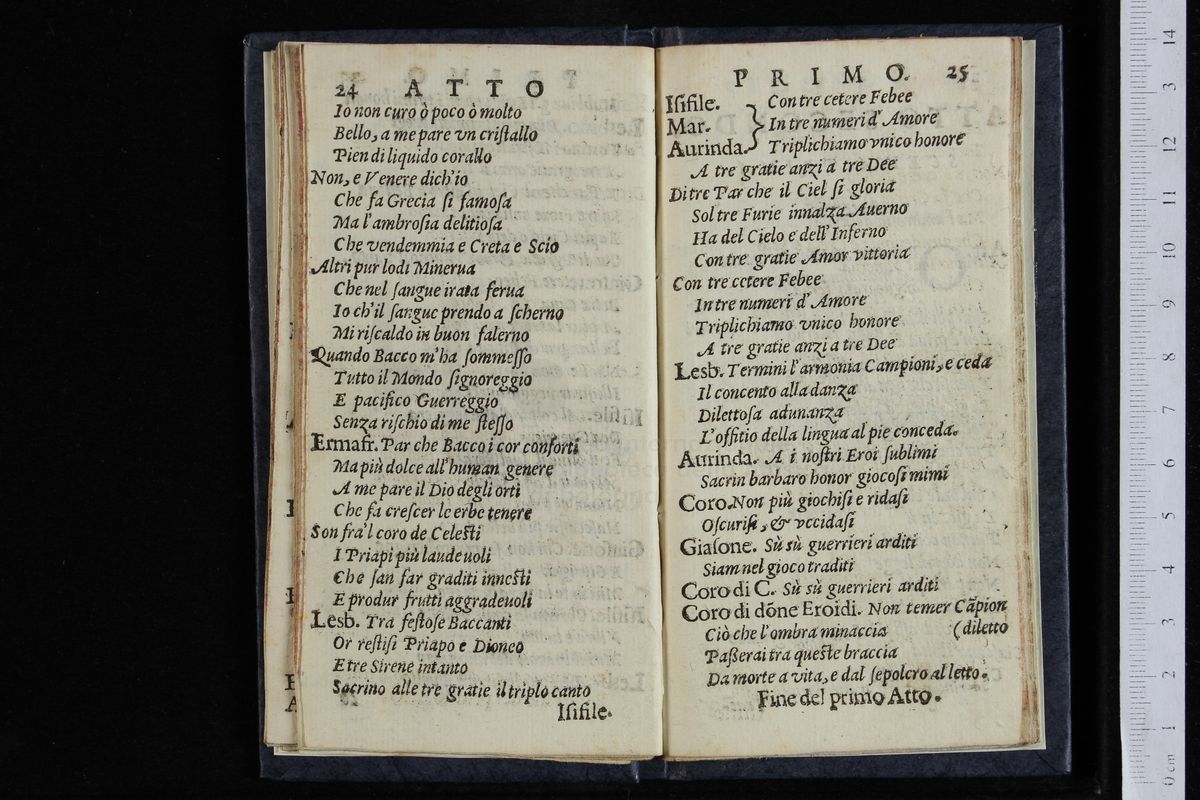 24 ATTO
Io non curo ò poco ò molto
Bello, a me pare vn criſtallo
Pien di liquido corallo
Non, e Venere dich'io
Che fa Grecia ſi famoſa
Ma l'ambroſia delitioſa
Che vendemmia e Creta e Scio
Altri pur lodi Minerua
Che nel ſangue irata ferua
Io ch'il ſangue prendo a ſcherno
Mi riſcaldo in buon falerno
Quando Bacco m'ha ſommeſſo
Tutto il Mondo ſignoreggio
E pacifico Guerreggio
Senza riſchio di me ſteſſo
Ermafr. Par che Bacco i cor conforti
Ma più dolce all'human genere
A me pare il Dio degli orti
Che fa creſcer le erbe tenere
Son fra'l coro de Celeſti
I Priapi più laudeuoli
Che ſan far graditi inneſti
E produr frutti aggradeuoli
Lesb. Tra feſtoſe Baccanti
Or reſtiſi Priapo e Dioneo
E tre Sirene intanto
Sacrino alle tre gratie il triplo canto
Iſifile.
PRIMO. 25
Iſifile. Con tre cetere Febee
Mar. In tre numeri d'Amore
Aurinda. Triplichiamo vnico honore
A tre gratie anzi a tre Dee
Di tre Par che il Ciel ſi gloria
Sol tre Furie innalza Auerno
Ha del Cielo e dell'Inferno
Con tre gratie Amor vittoria
Con tre cetere Febee
In tre numeri d'Amore
Triplichiamo vnico honore
A tre gratie anzi a tre Dee
Lesb. Termini l'armonia Campioni, e ceda
Il concento alla danza
Dilettoſa adunanza
L'offitio della lingua al pie conceda.
Aurinda. A i noſtri Eroi ſublimi
Sacrin barbaro honor giocoſi mimi
Coro. Non più giochiſi e ridaſi
Oſcuriſi, & vccidaſi
Giaſone. Sù sù guerrieri arditi
Siam nel gioco traditi
Coro di C. Sù sù guerrieri arditi
Coro di dōne Eroidi. Non temer Cāpion
Ciò che l'ombra minaccia (diletto
Paßerai tra queſte braccia
Da morte a vita, e dal ſepolcro al letto.
Fine del primo Atto.
14
13
12
11
10
9
8
7
6
5
4
3
2
1
0 cm